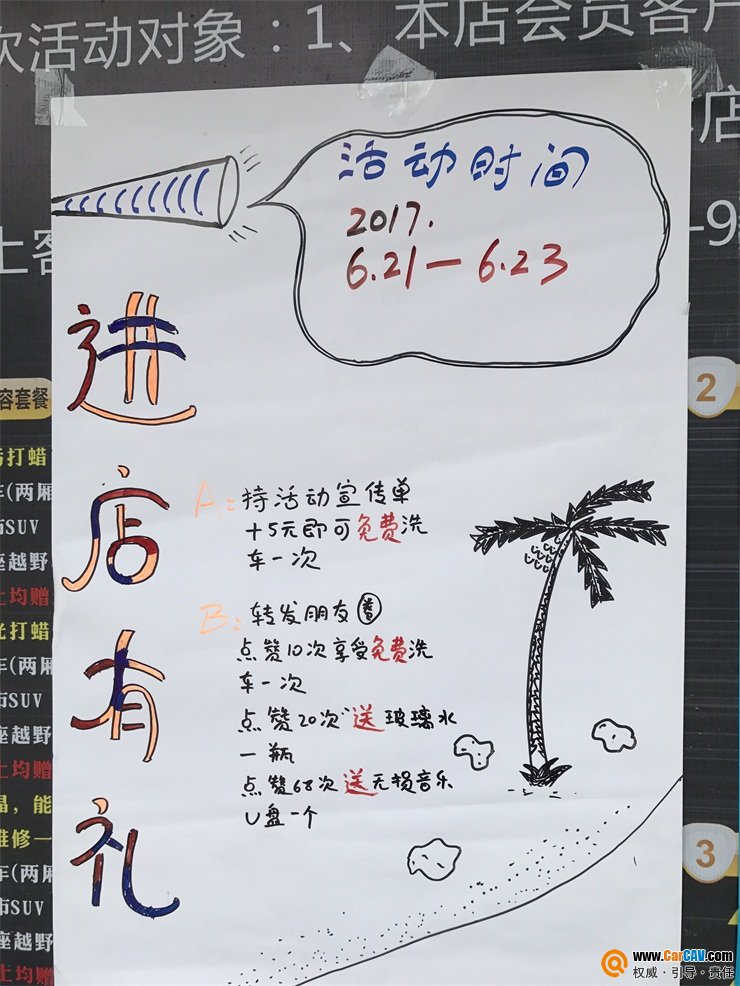 次活动对象：1、本店会员客户
店
上客
-9
活动时间
2017.
6.21—6.23
进店有礼
A：持活动宣传单
+5元即可免费洗
车一次
B：转发朋友圈
点赞10次享受免费洗
车一次
点赞20次送玻璃水
一瓶
点赞68次送无损音乐
U盘一个
容套餐
打蜡
车(两厢
市SUV
座越野
上均赠
光打蜡
车(两厢
市SUV
座越野
上均赠
晶，能
维修一
车(两厢
市SUV
座越野
上均赠
2
3
www.CarCAV.com
权威·引导·责任